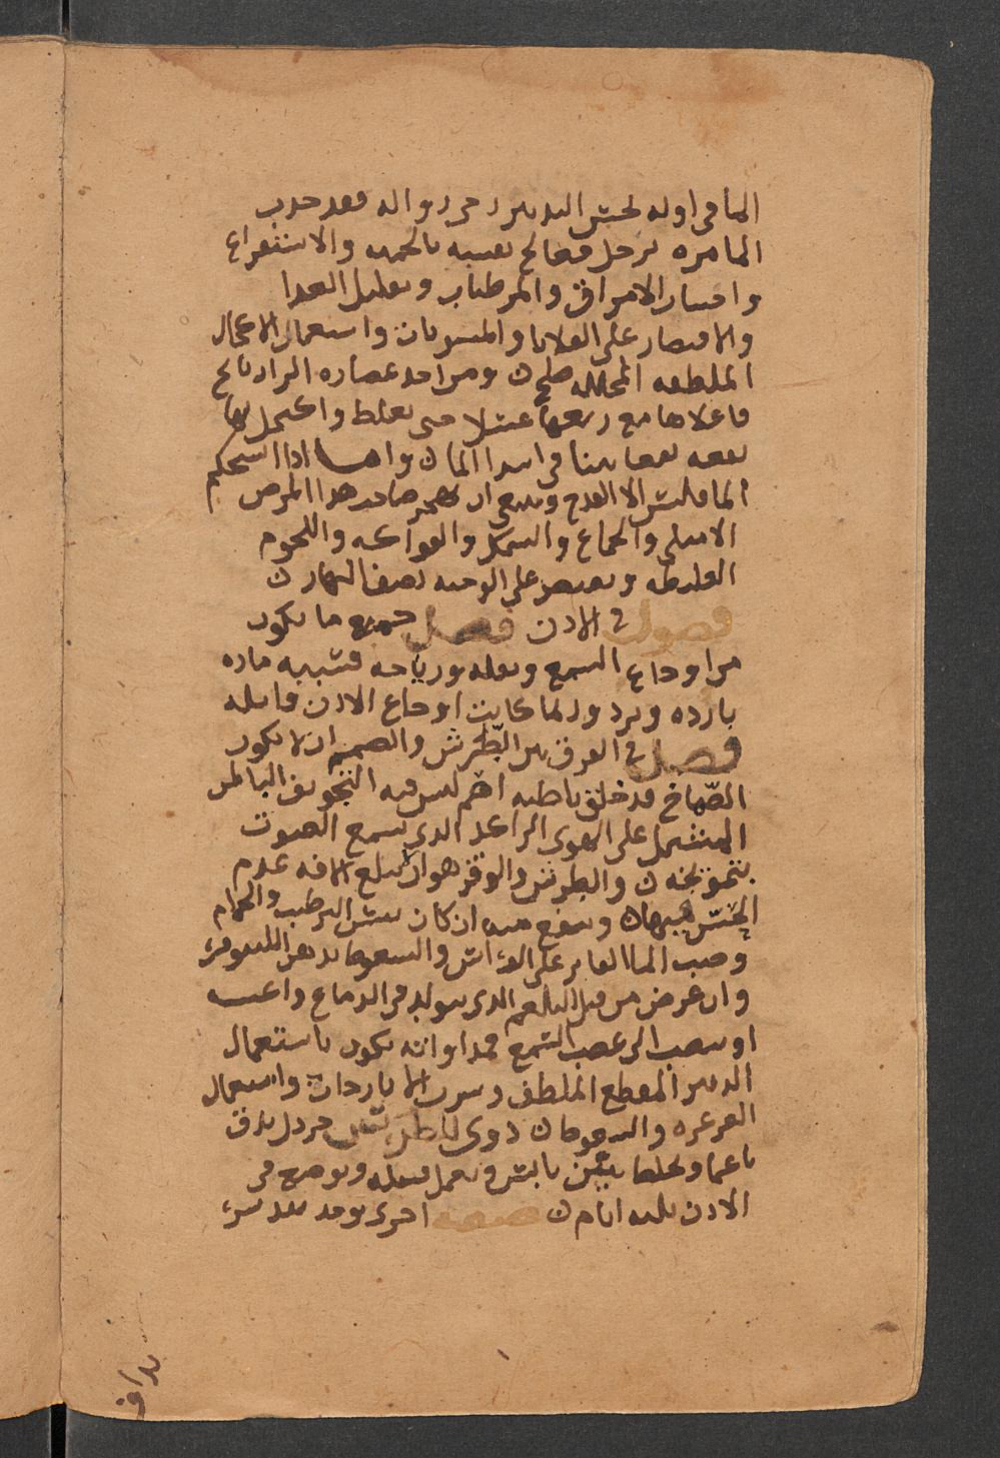 الما فى اوله بحسن التدبير رجى زواله فقد حدث
الما مره لرجل فعالج نفسه بالحميه والاستفراغ
واجتناب الامراق والمرطبات وتقليل الغدا
والاقتصار على القلايا والمشويات واستعمال الاكحال
الملطفه المحلله صلح ومن اخد عصاره الرازيانج
فاغلاها مع ربعها عسلا حتى تغلظ واكتحل بها
نفعه نفعا بينا فى ابتدا الما واما ادا استحكم
الما فليس الا القدح وينبغى ان يهجر صاحب هدا المرض
الامتلى والجماع والسمك والفواكه واللحوم
الغليظه ويقتصر على الوجبه نصف النهار
فصول فى الادن فصل جميع ما يكون
من اوجاع السمع وثقله ورياحه فسببه ماده
بارده وبرد ولما كانت اوجاع الادن قاتله
فصل فى الفرق بين الطرش والصمم ان لا يكون
الصماخ قد خلق باطنه اصم ليس فيه التجويف الباطن
المشتمل على الهوى الراكد الدى يسمع الصوت
بتموجه والطرش والوقر هو ان تبلغ الافه عدم
الحس وينفع منه ان كان بيبس الترطيب والحمام
وصب الما الفاتر على الراس والسعوط بدهن اللينوفر
وان عرض من قبل البلغم الدى يتولد فى الدماغ
او ينصب الى عصب السمع فمداواته يكون باستعمال
التدبير المقطع الملطف وشرب الايارجات واستعمال
الغرغره والسعوط دوى للطرش خردل يدق
ناعما ويخلط بتين يابس ويعمل فتيله ويوضع فى
الادن ثلثه ايام صفه اخرى يوخد